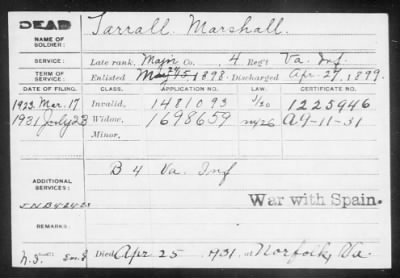 DEAD
NAME OF SOLDIER:
Tarrall, Marshall.
SERVICE:
Late rank, Major Co. 4 Reg't Va. Inf
TERM OF SERVICE:
Enlisted May 1898. Discharged Apr. 27, 1899.
DATE OF FILING. CLASS. APPLICATION NO. LAW. CERTIFICATE NO.
1923. Mar. 17 Invalid, 1481093 1225946
1931 July 23 Widow, 1698659 A9-11-31
Minor,
ADDITIONAL SERVICES:
B 4 Va. Inf
War with Spain.
REMARKS:
Died Apr 25 1931, at Norfolk, Va.